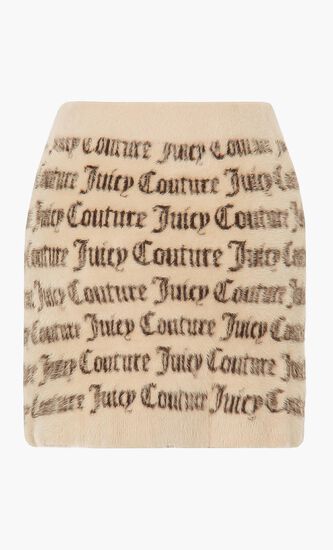 Couture Juicy Couture
Couture Juicy Couture
Juicy Couture Juicy Couture
Couture Juicy Couture
Couture Juicy Couture
Juicy Couture Juicy
Couture Juicy Couture
Couture Juicy